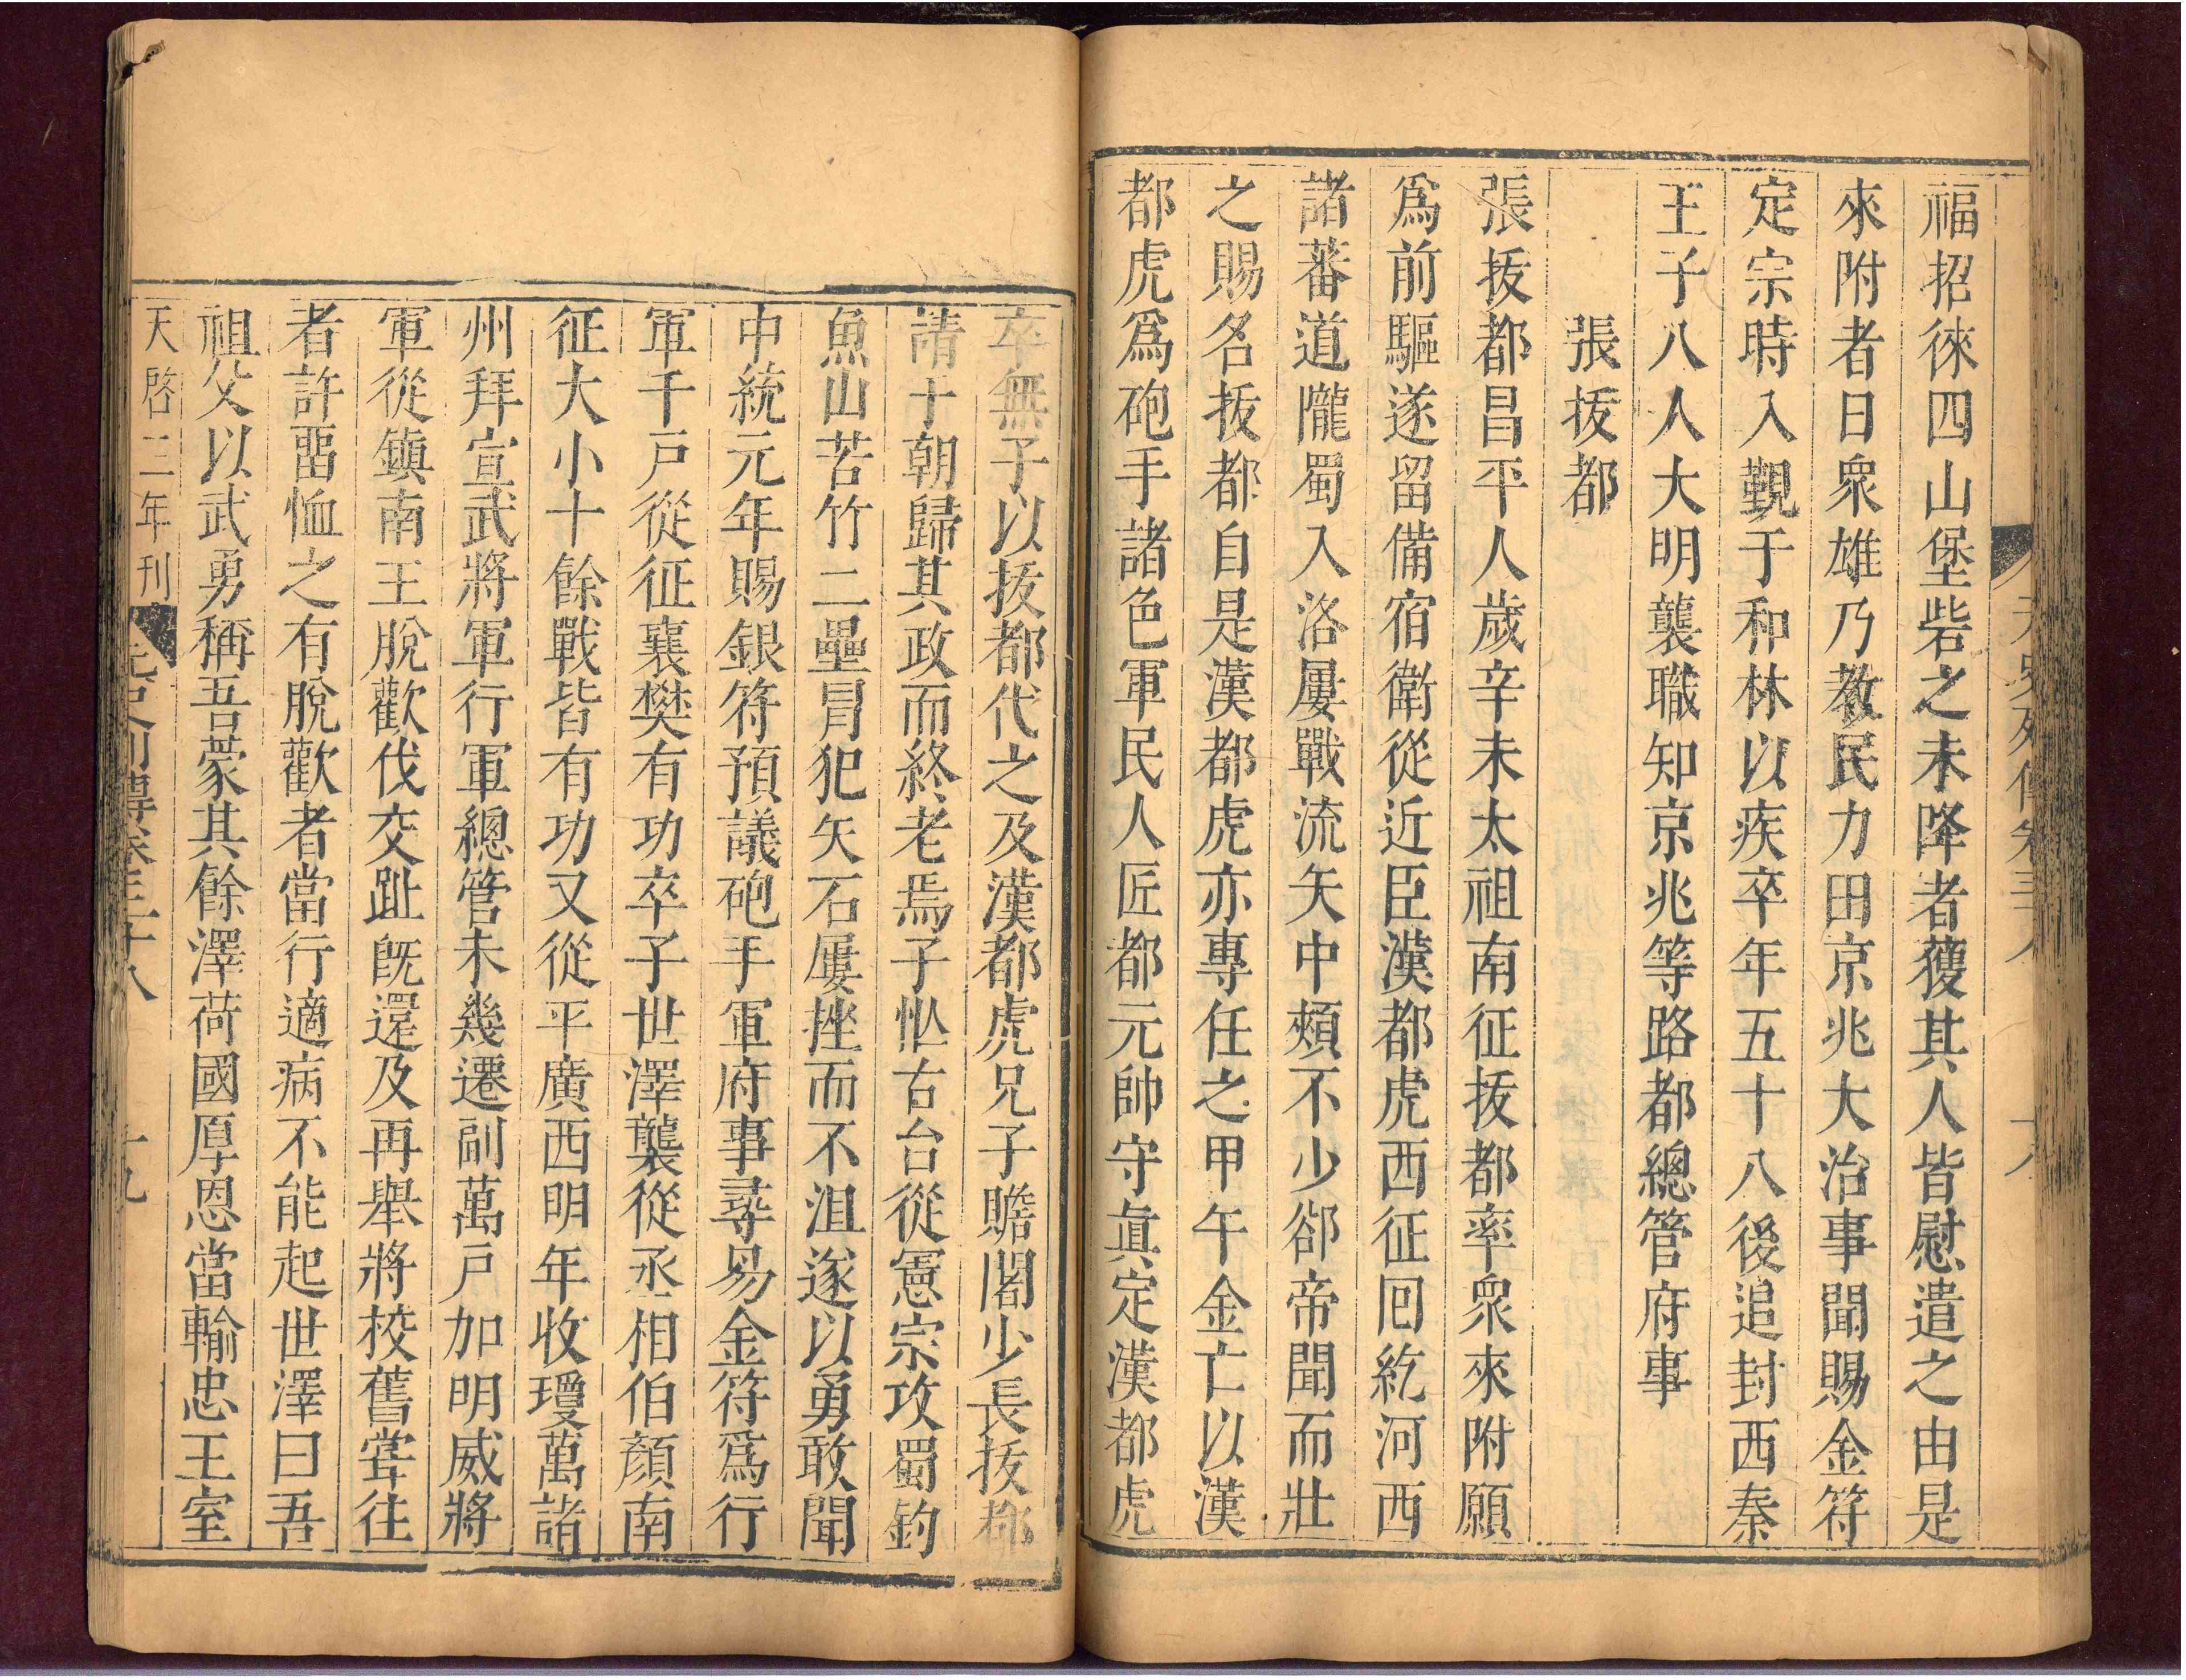 福招徠四山堡砦之未降者獲其人皆慰遣之由是
來附者日衆雄乃教民力田京兆大治事聞賜金符
定宗時入覲于和林以疾卒年五十八後追封西秦
王子八人大明襲職知京兆等路都總管府事
張拔都
張拔都昌平人歲辛未太祖南征拔都率衆來附願
爲前驅遂留備宿衛從近臣漢都虎西征回紇河西
諸蕃道隴蜀入洛屢戰流矢中頰不少郤帝聞而壯
之賜名拔都自是漢都虎亦專任之甲午金亡以漢
都虎爲砲手諸色軍民人匠都元帥守眞定漢都虎
卒無子以拔都代之及漢都虎兄子瞻闍少長拔都
請于朝歸其政而終老焉子忙古台從憲宗攻蜀釣
魚山苦竹二壘冒犯矢石屢挫而不沮遂以勇敢聞
中統元年賜銀符預議砲手軍府事尋易金符爲行
軍千戸從征襄樊有功卒子世澤襲從丞相伯顏南
征大小十餘戰皆有功又從平廣西明年收瓊萬諸
州拜宣武將軍行軍總管未幾遷副萬戸加明威將
軍從鎮南王脫歡伐交趾旣還及再舉將校舊嘗往
者許畱恤之有脫歡者當行適病不能起世澤曰吾
祖父以武勇稱吾蒙其餘澤荷國厚恩當輸忠王室
天啓三年刊 元史列傳卷三十八 十九